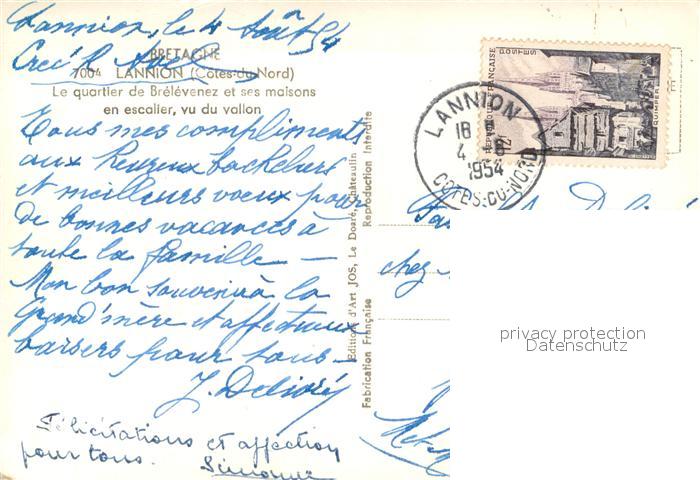 Lannion, le 4 Août 54
BRETAGNE
7004 LANNION (Côtes-du-Nord)
Le quartier de Brélévenez et ses maisons
en escalier, vu du vallon
Tous mes compliments
aux heureux bacheliers
et meilleurs voeux pour
de bonnes vacances à
toute la famille —
Mon bon souvenir à la
Grand'mère et affectueux
baisers pour tous —
Félicitations et affection
pour tous. Simonne
Editions d'Art JOS, Le Doaré, Châteaulin
Reproduction Interdite
Fabrication Française
POSTES
REPUBLIQUE FRANÇAISE
QUIMPER
LANNION
18
4
1954
COTES-DU-NORD
chez
privacy protection
Datenschutz